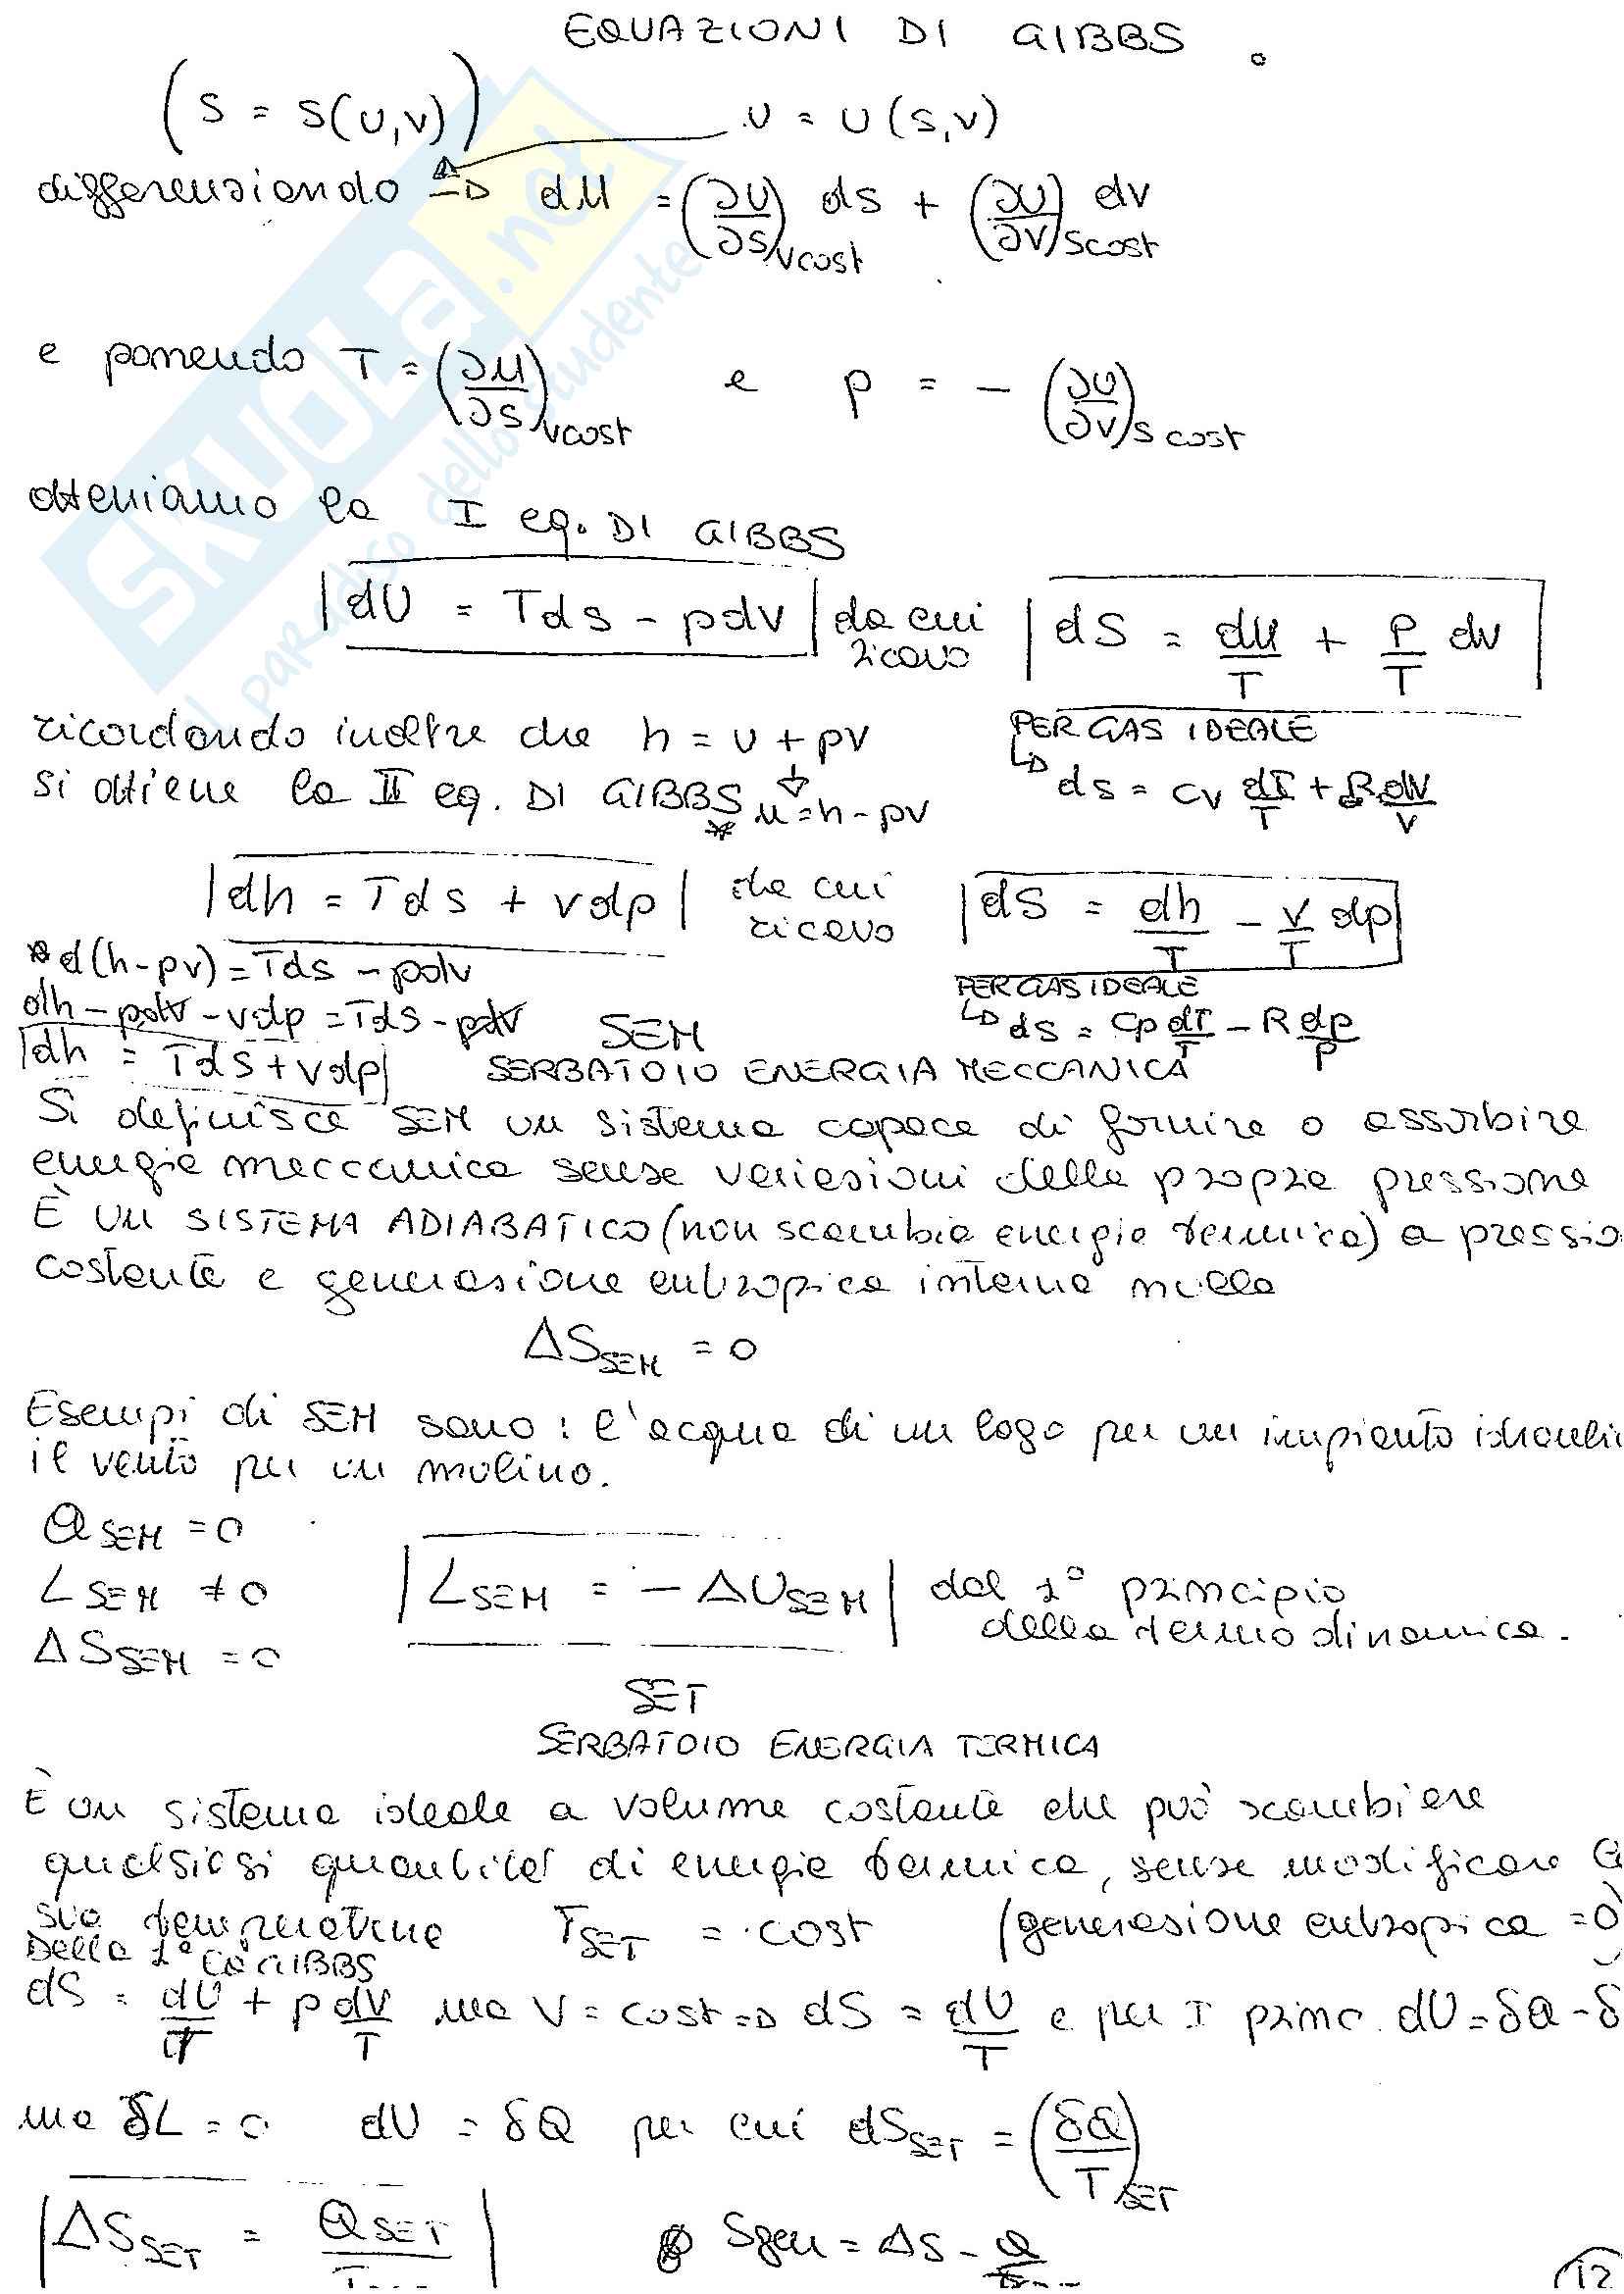 EQUAZIONI DI GIBBS
(S = S(U,V)) U = U(S,V)
differenziando → dU = (∂U/∂S)Vcost dS + (∂U/∂V)Scost dV
e ponendo T = (∂U/∂S)Vcost e p = - (∂U/∂V)S cost
otteniamo la I eq. DI GIBBS
|dU = TdS - pdV| da cui ricavo |dS = dU/T + P/T dV|
ricordando inoltre che h = u + pv
PER GAS IDEALE
si ottiene la II eq. DI GIBBS * u = h - pv
↳ ds = cv dT/T + R dV/V
|dh = Tds + vdp| da cui ricavo |dS = dh/T - V/T dp|
* d(h-pv) = Tds - pdv
PER GAS IDEALE
dh - pdv - vdp = Tds - pdv
↳ ds = Cp dT/T - R dp/P
|dh = Tds + vdp|
SEM
SERBATOIO ENERGIA MECCANICA
Si definisce SEM un sistema capace di fornire o assorbire
energia meccanica senza variazioni della propra pressione
È UN SISTEMA ADIABATICO (non scambia energia termica) a pressio
costante e generazione entropica interna nulla
ΔS SEM = 0
Esempi di SEM sono: l'acqua di un lago per un impianto idrauli
il vento per un mulino.
Q SEM = 0
L SEM ≠ 0 |L SEM = - ΔU SEM| dal 1° principio
della termodinamica.
ΔS SEM = 0
SET
SERBATOIO ENERGIA TERMICA
È un sistema ideale a volume costante che può scambiare
qualsiasi quantità di energia termica, senza modificare
sua temperatura T SET = cost (generazione entropica = 0)
Dalla 1° EQ GIBBS
dS = dU/T + p dV/T ma V = cost → dS = dU/T e per I princ. dU = δQ - δ
ma δL = 0 dU = δQ per cui dS SET = (δQ/T) SET
|ΔS SET = Q SET/T| Sgen = ΔS - Q
12
Skuola.net
Il paradiso dello studente